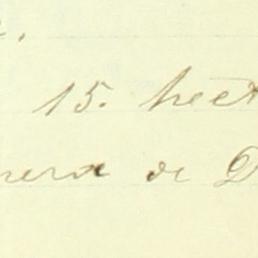 15. hect
nera de D